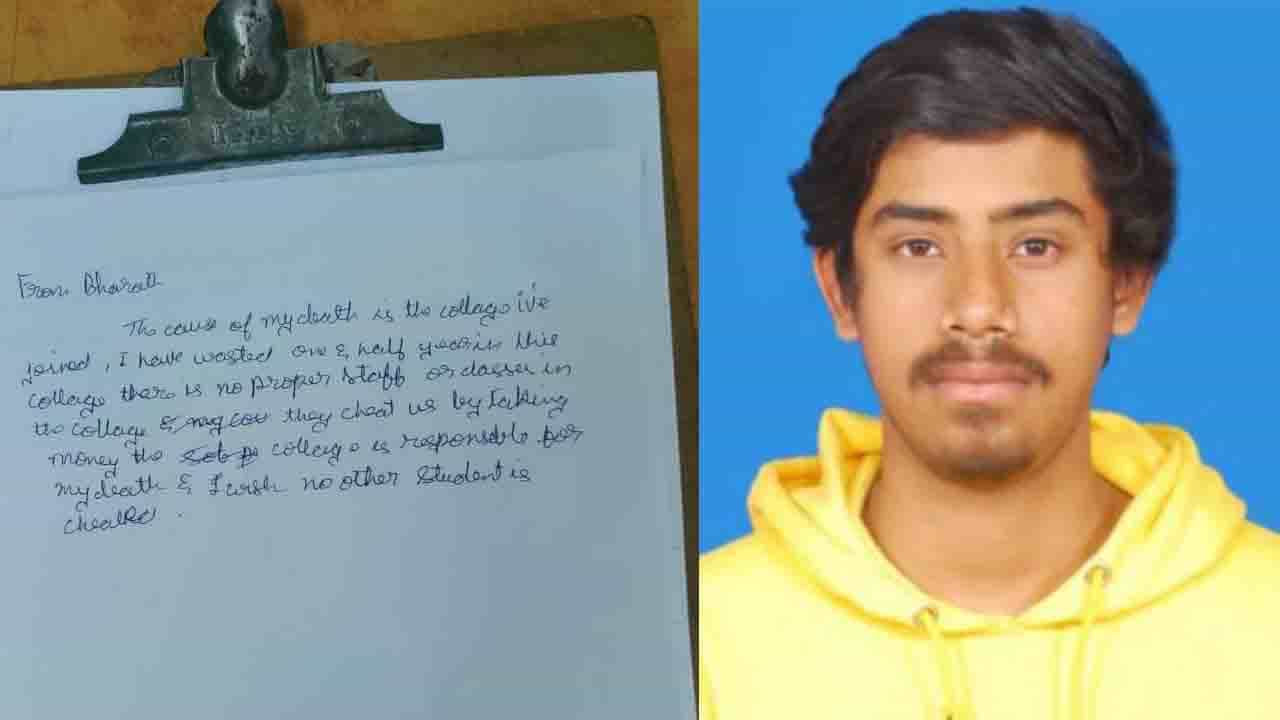 From Bharath
The cause of my death is the collage i've
joined, I have wasted one & half year in this
collage there is no proper staff or classes in
the collage & they cheat us by taking
money the collage is responsible for
my death & I wish no other student is
cheated.